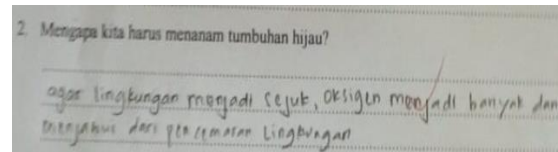 2. Mengapa kita harus menanam tumbuhan hijau?
agar lingkungan menjadi sejuk, oksigen menjadi banyak dan
dari pencemaran Lingkungan